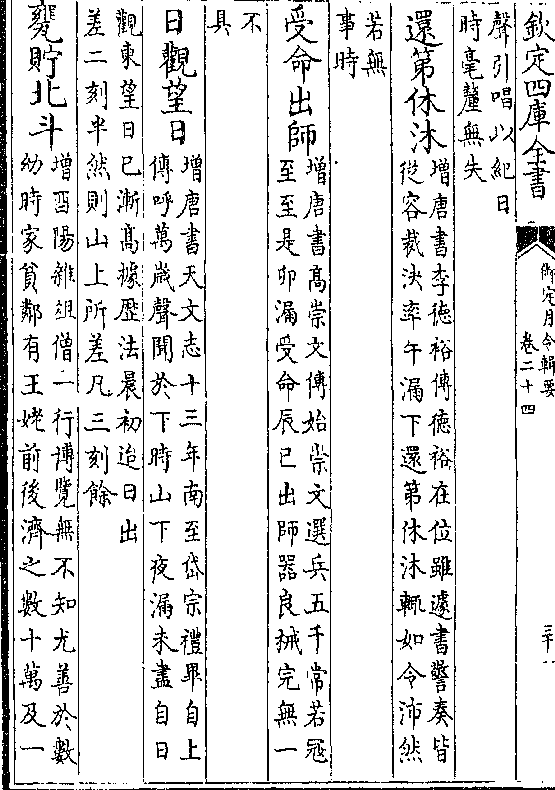 欽定四庫全書
御定月令輯要
卷二十四
三十一
聲引唱以紀日
時毫釐無失
還第休沐
増唐書李徳裕傳徳裕在位雖遽書警奏皆
從容裁決率午漏下還第休沐輒如令沛然
若無
事時
受命出師
増唐書髙崇文傳始崇文選兵五千常若冦
至至是卯漏受命辰已出師器良械完無一
不
具
日觀望日
増唐書天文志十三年南至岱宗禮畢自上
傳呼萬歲聲聞於下時山下夜漏未盡自日
觀東望日已漸髙據歴法晨初迨日出
差二刻半然則山上所差凡三刻餘
甕貯北斗
増酉陽雜俎僧一行博覽無不知尤善於數
幼時家貧鄰有王姥前後濟之數十萬及一